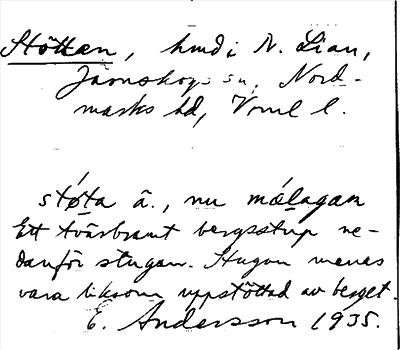 Stöttan, hmd i N. Lian,
Järnskogs sn, Nord-
marks hd, Vrml l.
stǿta ā., nu mólagan
Ett tvärbrant bergsstup ne-
danför stugan. Stugan menas
vara liksom uppstöttad av berget.
E. Andersson 1935.